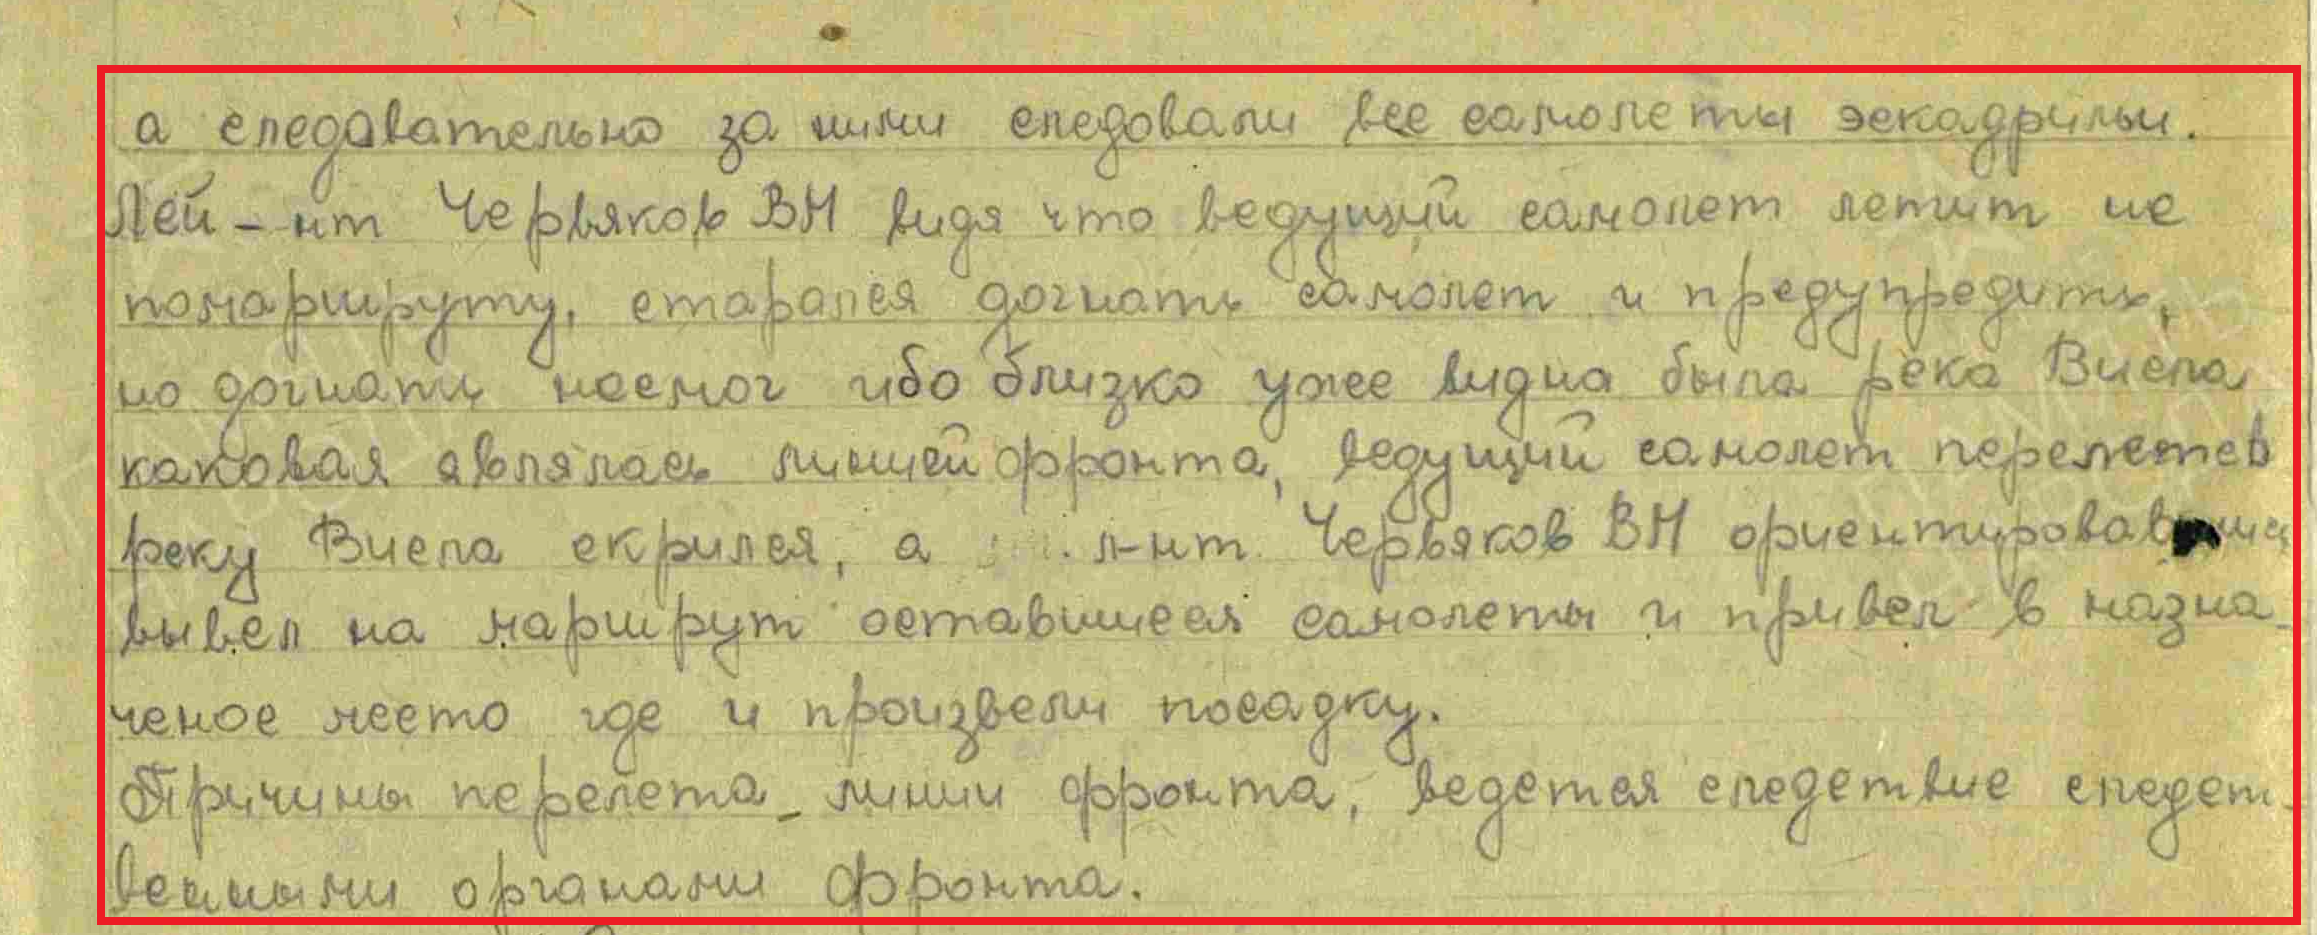 а следавательно за ними следовали все самолеты эскадрильи.
Лей-нт Червяков ВН видя что ведущий самолет летит не
помаршруту, старался догнать самолет и предупредить,
но догнать несмог ибо близко уже видна была река Висла
каковая являлась линией фронта, ведущий самолет перелетев
реку Висла скрился, а л-нт Червяков ВН
вывел на маршрут оставшиеся самолеты и привел в назна-
ченое место где и произвели посадку.
Причины перелета линии фронта, ведется следствие следст-
венными органами фронта.